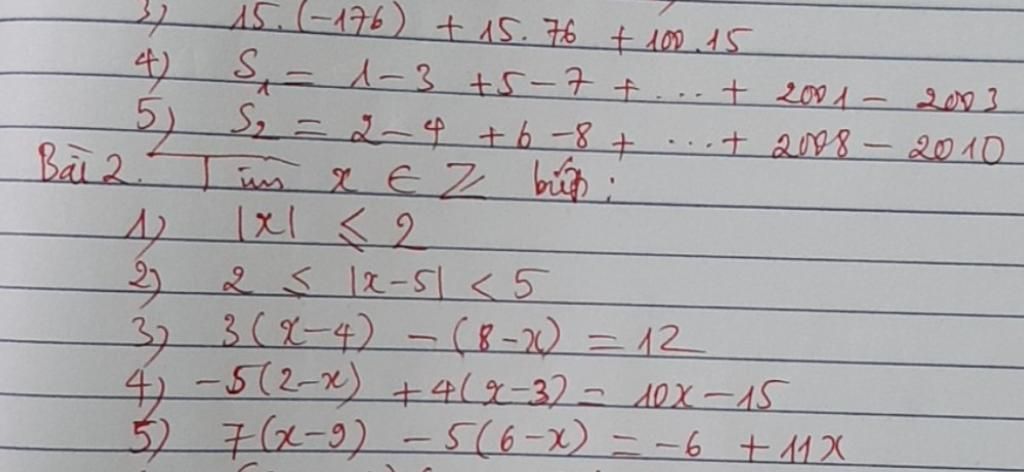 3) 15.(-176) + 15.76 + 100.15
4) S₁ = 1-3 +5-7 + ... + 2001 - 2003
5) S₂ = 2-4 +6-8 + ... + 2008 - 2010
Bài 2. Tìm x ∈ Z biết:
1) |x| ≤ 2
2) 2 ≤ |x-5| < 5
3) 3(x-4) - (8-x) = 12
4) -5(2-x) + 4(x-3) = 10x-15
5) 7(x-9) - 5(6-x) = -6 + 11x